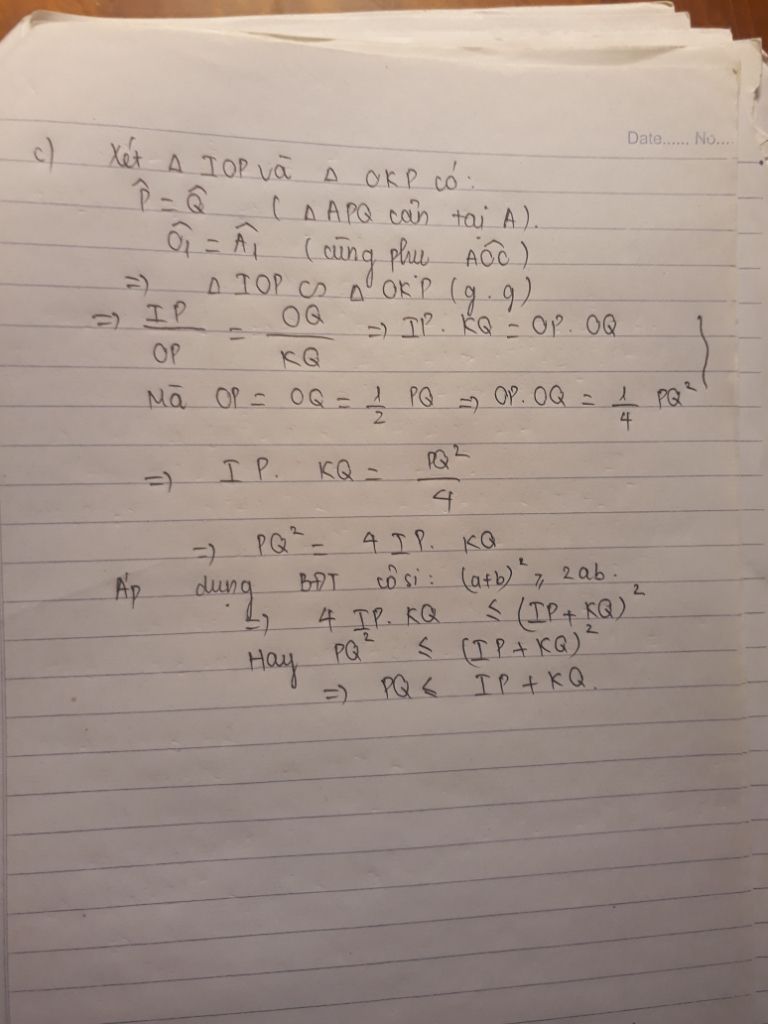 Date...... No....
c) Xét Δ IOP và Δ OKP có:
P̂ = Q̂ ( Δ APQ cân tại A).
Ô₁ = Â₁ (cùng phụ AÔC)
=> Δ IOP ∽ Δ OKP (g.g)
=> IP/OP = OQ/KQ => IP. KQ = OP. OQ }
Mà OP = OQ = 1/2 PQ => OP.OQ = 1/4 PQ²
=> IP. KQ = PQ²/4
=> PQ² = 4 IP. KQ
Áp dụng BĐT cô si: (a+b)² ≥ 2ab.
=> 4 IP. KQ ≤ (IP + KQ)²
Hay PQ² ≤ (IP + KQ)²
=> PQ ≤ IP + KQ.